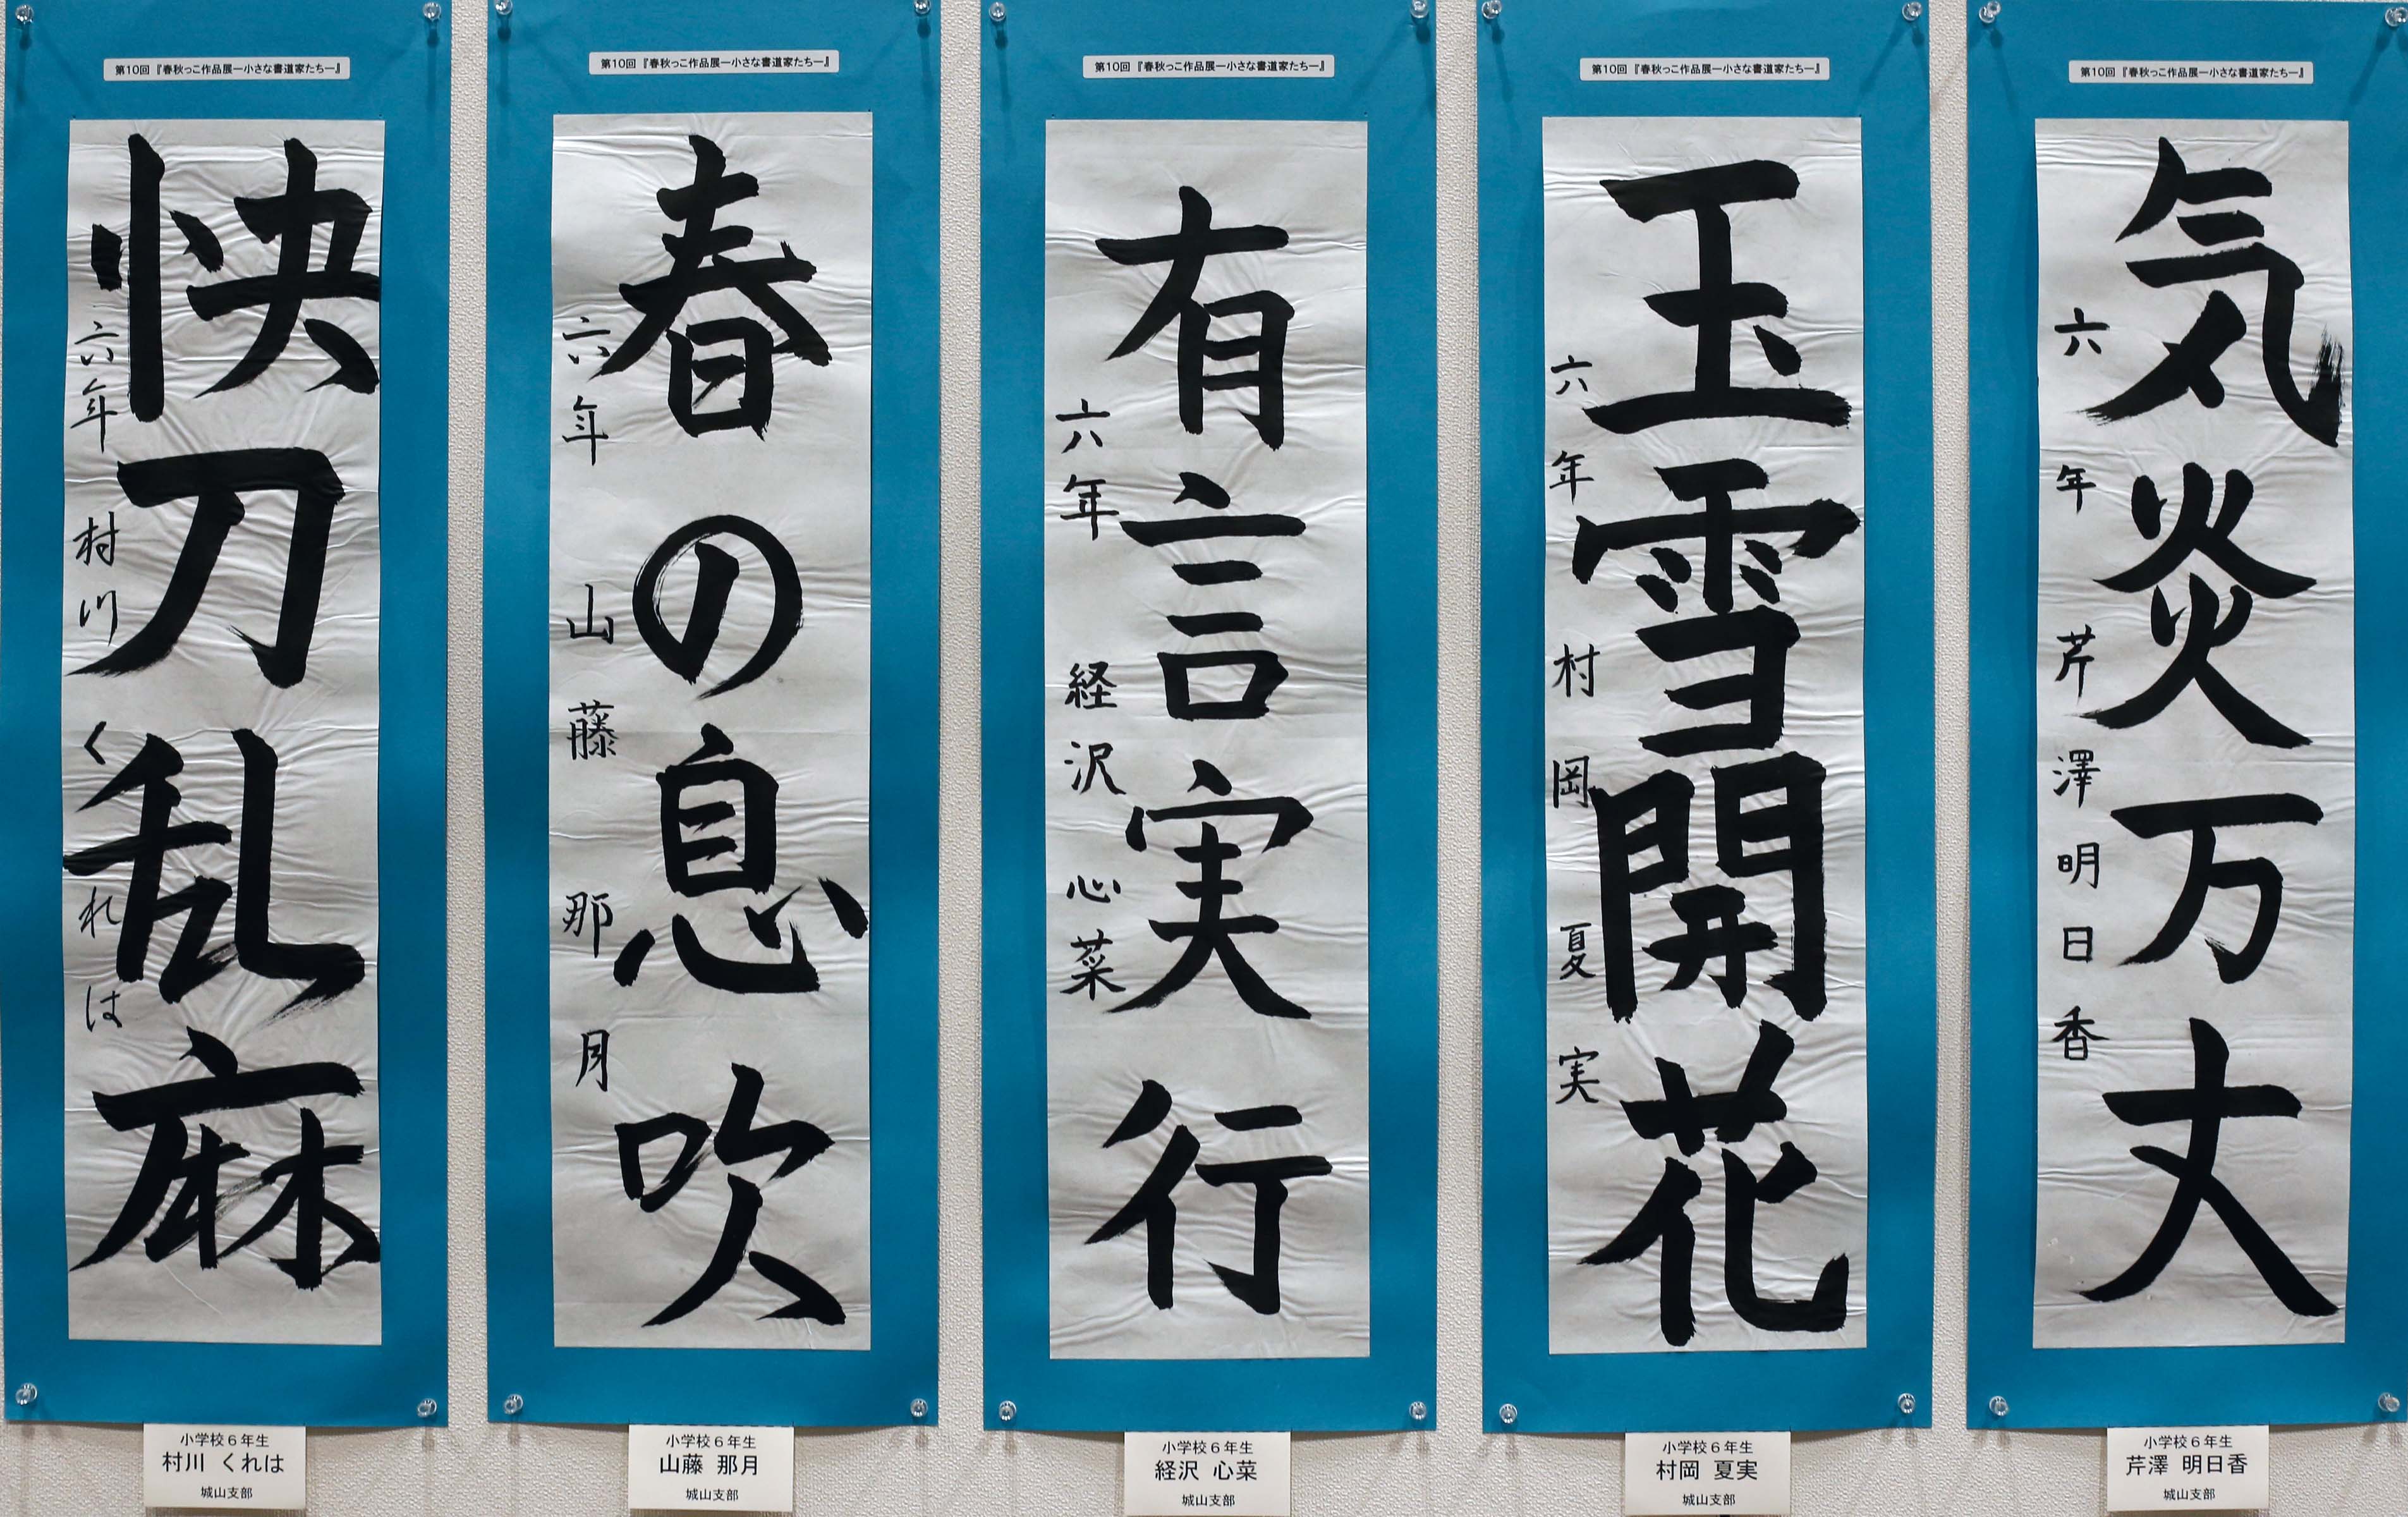 第10回『春秋っこ作品展―小さな書道家たち―』
快刀乱麻
六年 村川 くれは
小学校6年生
村川 くれは
城山支部
第10回『春秋っこ作品展―小さな書道家たち―』
春の息吹
六年 山藤 那月
小学校6年生
山藤 那月
城山支部
第10回『春秋っこ作品展―小さな書道家たち―』
有言実行
六年 経沢 心菜
小学校6年生
経沢 心菜
城山支部
第10回『春秋っこ作品展―小さな書道家たち―』
玉雪開花
六年 村岡 夏実
小学校6年生
村岡 夏実
城山支部
第10回『春秋っこ作品展―小さな書道家たち―』
気炎万丈
六年 芹澤 明日香
小学校6年生
芹澤 明日香
城山支部